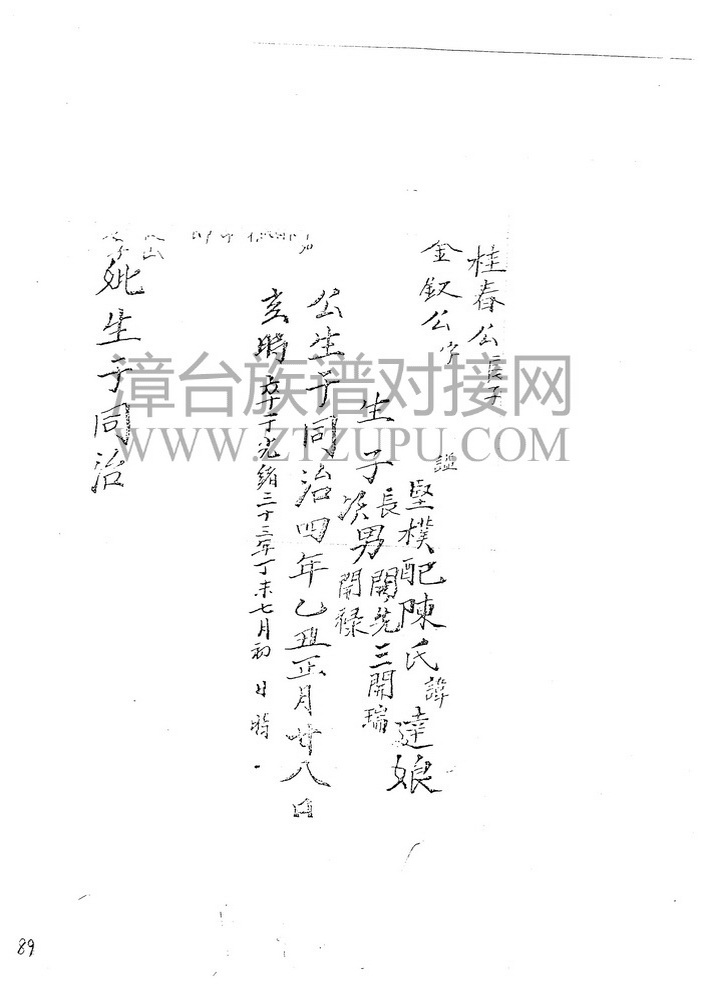 桂春公長子
金釵公字
諡堅樸配陳氏諱達娘
生子長男開先三開瑞
次開祿
公生于同治四年乙丑正月廿八日
亥時卒于光緒三十三年丁未七月初 日時
妣生于同治
漳台族谱对接网
WWW.ZTZUPU.COM
89